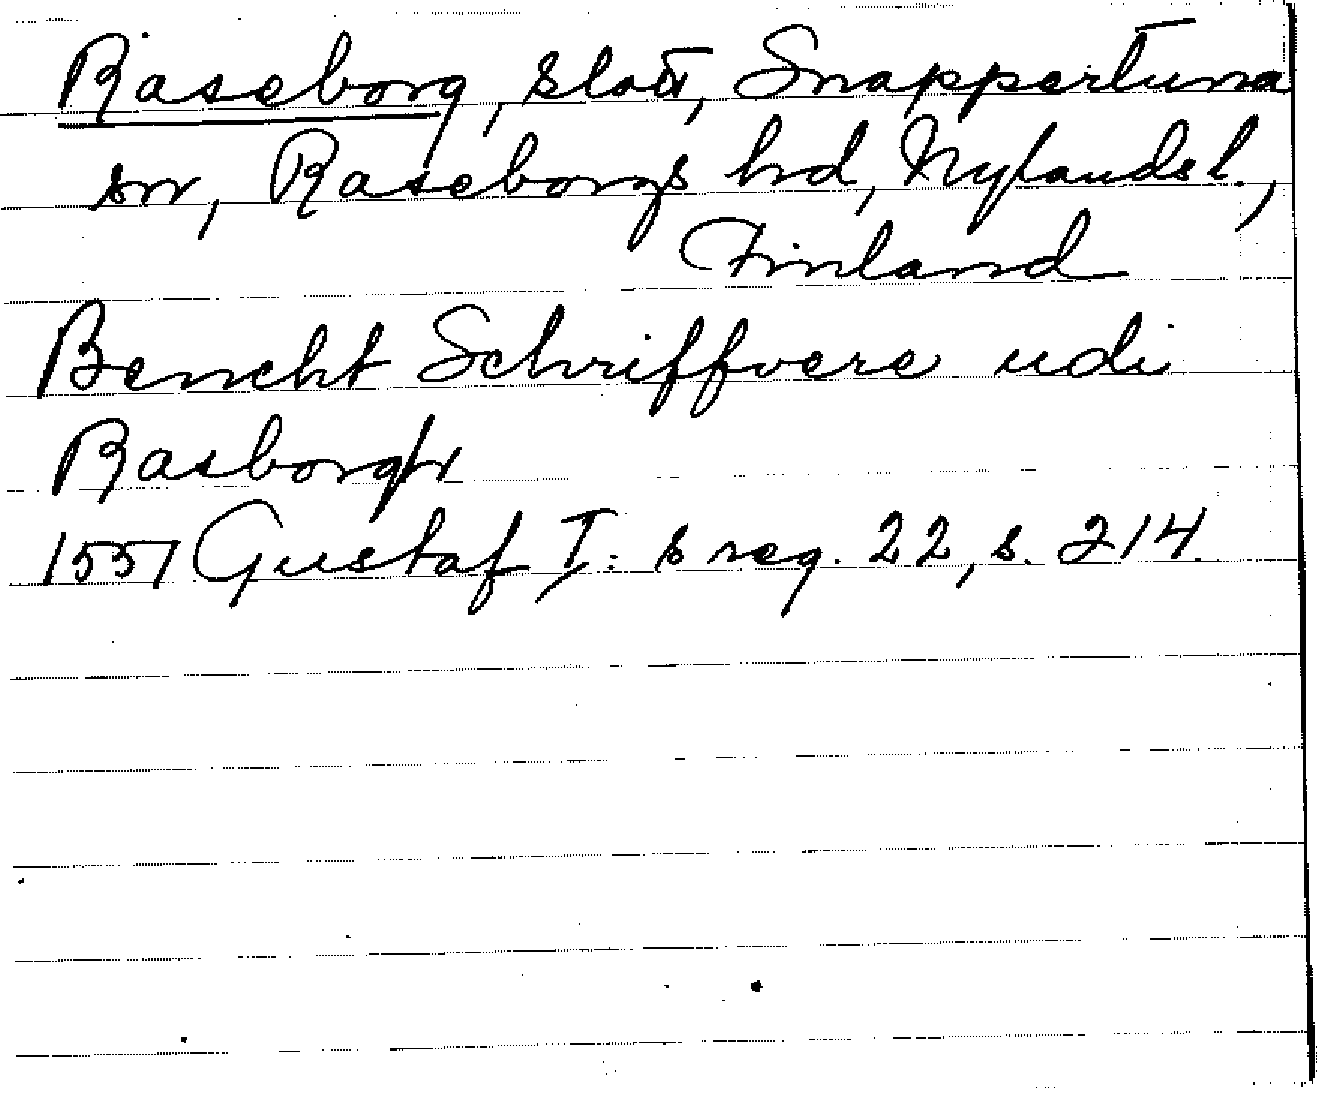 Raseborg, slott, Snappertuna
sn, Raseborgs hd, Nylands l.,
Finland
Bencht Schriffvere udi
Rasborgh
1557 Gustaf I:s reg. 22, s. 214.